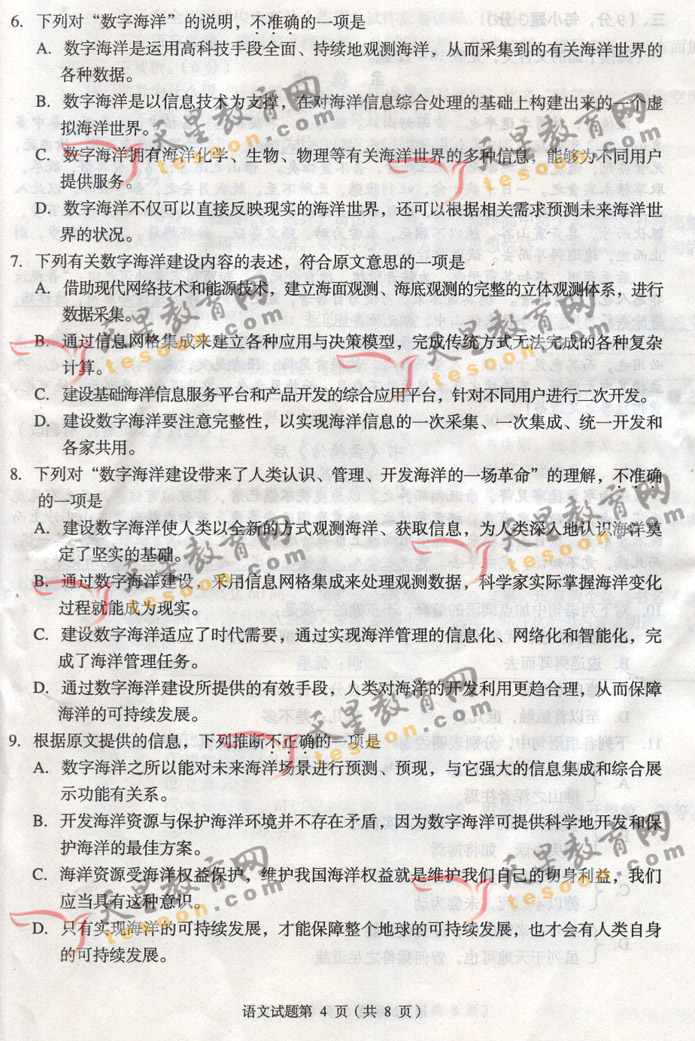 6. 下列对“数字海洋”的说明，不准确的一项是
A. 数字海洋是运用高科技手段全面、持续地观测海洋，从而采集到的有关海洋世界的
各种数据。
B. 数字海洋是以信息技术为支撑，在对海洋信息综合处理的基础上构建出来的一个虚
拟海洋世界。
C. 数字海洋拥有海洋化学、生物、物理等有关海洋世界的多种信息，能够为不同用户
提供服务。
D. 数字海洋不仅可以直接反映现实的海洋世界，还可以根据相关需求预测未来海洋世
界的状况。
7. 下列有关数字海洋建设内容的表述，符合原文意思的一项是
A. 借助现代网络技术和能源技术，建立海面观测、海底观测的完整的立体观测体系，进行
数据采集。
B. 通过信息网格集成来建立各种应用与决策模型，完成传统方式无法完成的各种复杂
计算。
C. 建设基础海洋信息服务平台和产品开发的综合应用平台，针对不同用户进行二次开发。
D. 建设数字海洋要注意完整性，以实现海洋信息的一次采集、一次集成、统一开发和
各家共用。
8. 下列对“数字海洋建设带来了人类认识、管理、开发海洋的一场革命”的理解，不准确
的一项是
A. 建设数字海洋使人类以全新的方式观测海洋、获取信息，为人类深入地认识海洋奠
定了坚实的基础。
B. 通过数字海洋建设，采用信息网格集成来处理观测数据，科学家实际掌握海洋变化
过程就能成为现实。
C. 建设数字海洋适应了时代需要，通过实现海洋管理的信息化、网络化和智能化，完
成了海洋管理任务。
D. 通过数字海洋建设所提供的有效手段，人类对海洋的开发利用更趋合理，从而保障
海洋的可持续发展。
9. 根据原文提供的信息，下列推断不正确的一项是
A. 数字海洋之所以能对未来海洋场景进行预测、预现，与它强大的信息集成和综合展
示功能有关系。
B. 开发海洋资源与保护海洋环境并不存在矛盾，因为数字海洋可提供科学地开发和保
护海洋的最佳方案。
C. 海洋资源受海洋权益保护，维护我国海洋权益就是维护我们自己的切身利益，我们
应当具有这种意识。
D. 只有实现海洋的可持续发展，才能保障整个地球的可持续发展，也才会有人类自身
的可持续发展。
语文试题第 4 页（共 8 页）
天星教育网
tesoon.com
天星教育网
tesoon.com
天星教育网
tesoon.com
天星教育网
tesoon.com
天星教育网
tesoon.com
天星教育网
tesoon.com
天星教育网
tesoon.com
天星教育网
tesoon.com
天星教育网
tesoon.com